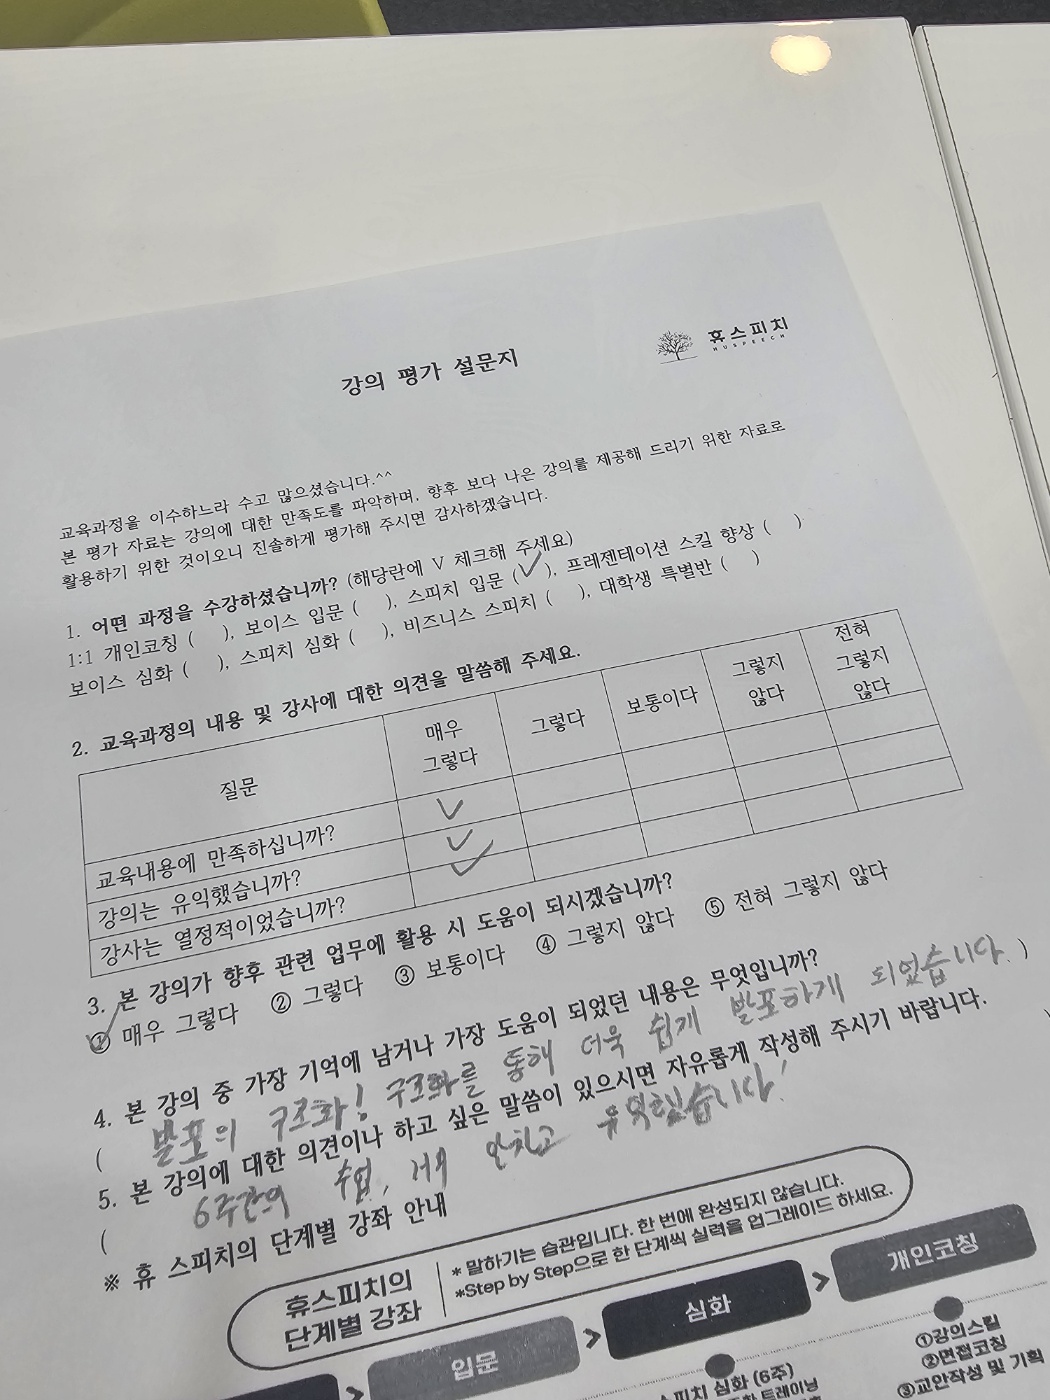 휴스피치
HUSPEECH
강의 평가 설문지
교육과정을 이수하느라 수고 많으셨습니다.^^
본 평가 자료는 강의에 대한 만족도를 파악하며, 향후 보다 나은 강의를 제공해 드리기 위한 자료로
활용하기 위한 것이오니 진솔하게 평가해 주시면 감사하겠습니다.
1. 어떤 과정을 수강하셨습니까? (해당란에 V 체크해 주세요)
1:1 개인코칭 ( ), 보이스 입문 ( ), 스피치 입문 (✓), 프레젠테이션 스킬 향상 ( )
보이스 심화 ( ), 스피치 심화 ( ), 비즈니스 스피치 ( ), 대학생 특별반 ( )
2. 교육과정의 내용 및 강사에 대한 의견을 말씀해 주세요.
질문 매우 그렇다 그렇다 보통이다 그렇지 않다 전혀 그렇지 않다
교육내용에 만족하십니까? ✓
강의는 유익했습니까? ✓
강사는 열정적이었습니까? ✓
3. 본 강의가 향후 관련 업무에 활용 시 도움이 되시겠습니까?
① 매우 그렇다 ② 그렇다 ③ 보통이다 ④ 그렇지 않다 ⑤ 전혀 그렇지 않다
4. 본 강의 중 가장 기억에 남거나 가장 도움이 되었던 내용은 무엇입니까?
( 발표의 구조화! 구조화를 통해 더욱 쉽게 발표하게 되었습니다. )
5. 본 강의에 대한 의견이나 하고 싶은 말씀이 있으시면 자유롭게 작성해 주시기 바랍니다.
( 6주간의 수업, 알차고 유익했습니다! )
※ 휴 스피치의 단계별 강좌 안내
휴스피치의
단계별 강좌
* 말하기는 습관입니다. 한 번에 완성되지 않습니다.
*Step by Step으로 한 단계씩 실력을 업그레이드 하세요.
입문 > 심화 > 개인코칭
스피치 심화 (6주)
①강의스킬
②면접코칭
③교안작성 및 기획